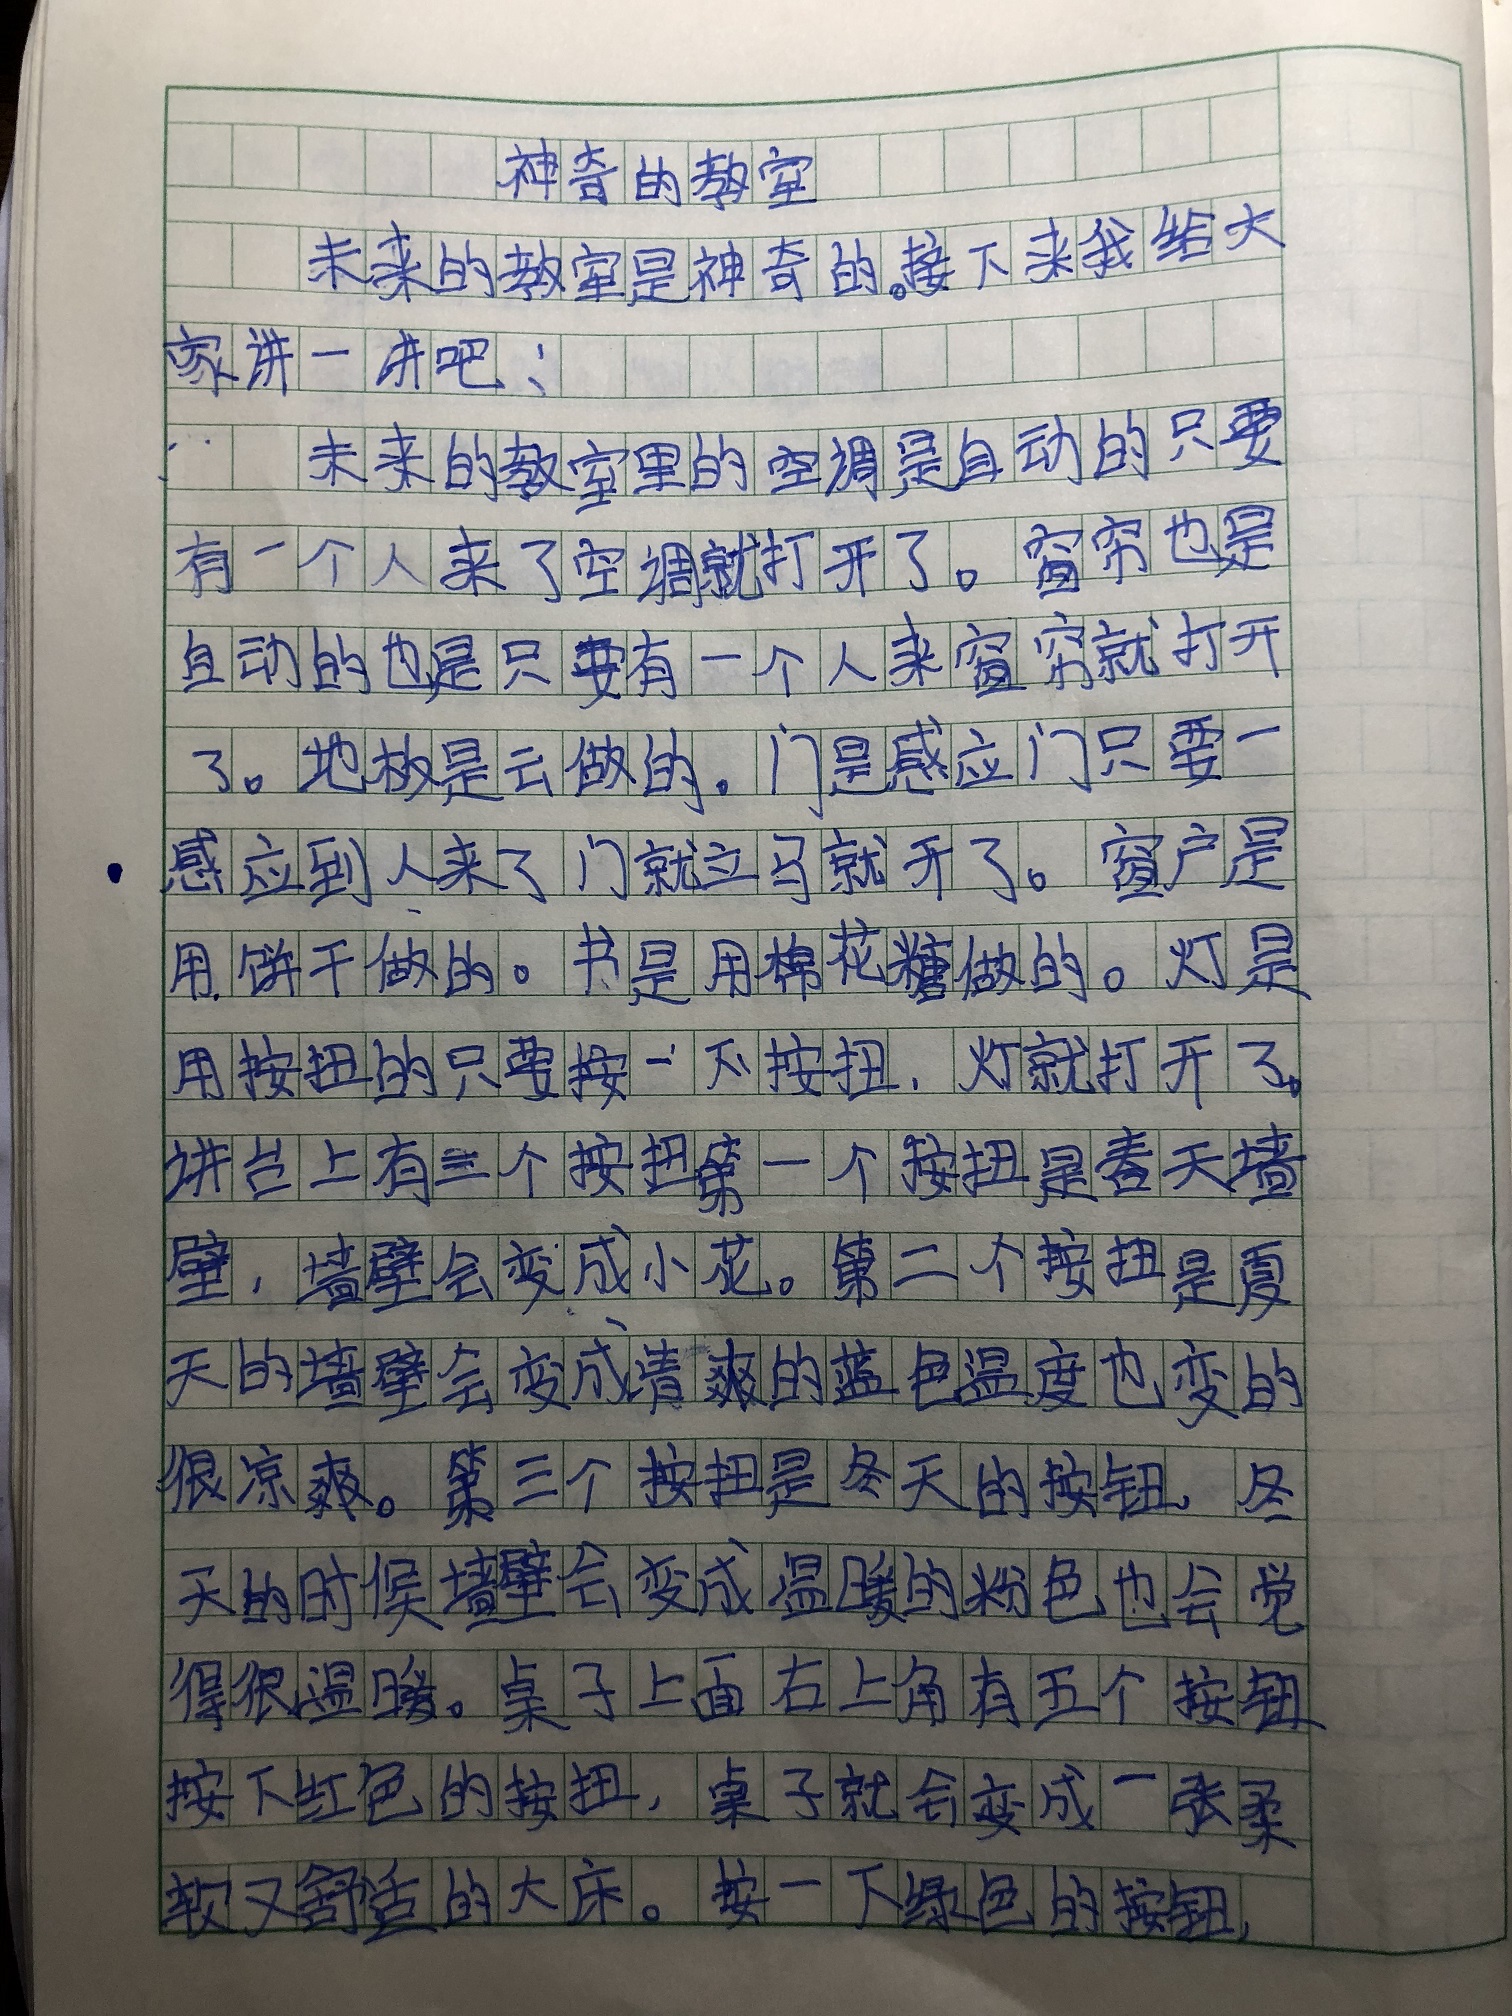 神奇的教室
未来的教室是神奇的。接下来我给大
家讲一讲吧：
未来的教室里的空调是自动的只要
有一个人来了空调就打开了。窗帘也是
自动的也是只要有一个人来窗帘就打开
了。地板是云做的。门是感应门只要一
感应到人来了门就立马就开了。窗户是
用饼干做的。书是用棉花糖做的。灯是
用按扭的只要按一下按扭，灯就打开了。
讲台上有三个按扭第一个按扭是春天墙
壁，墙壁会变成小花。第二个按扭是夏
天的墙壁会变成清爽的蓝色温度也变的
很凉爽。第三个按扭是冬天的按钮，冬
天的时候墙壁会变成温暖的粉色也会觉
得很温暖。桌子上面右上角有五个按钮
按下红色的按扭，桌子就会变成一张柔
软又舒适的大床。按一下绿色的按钮，